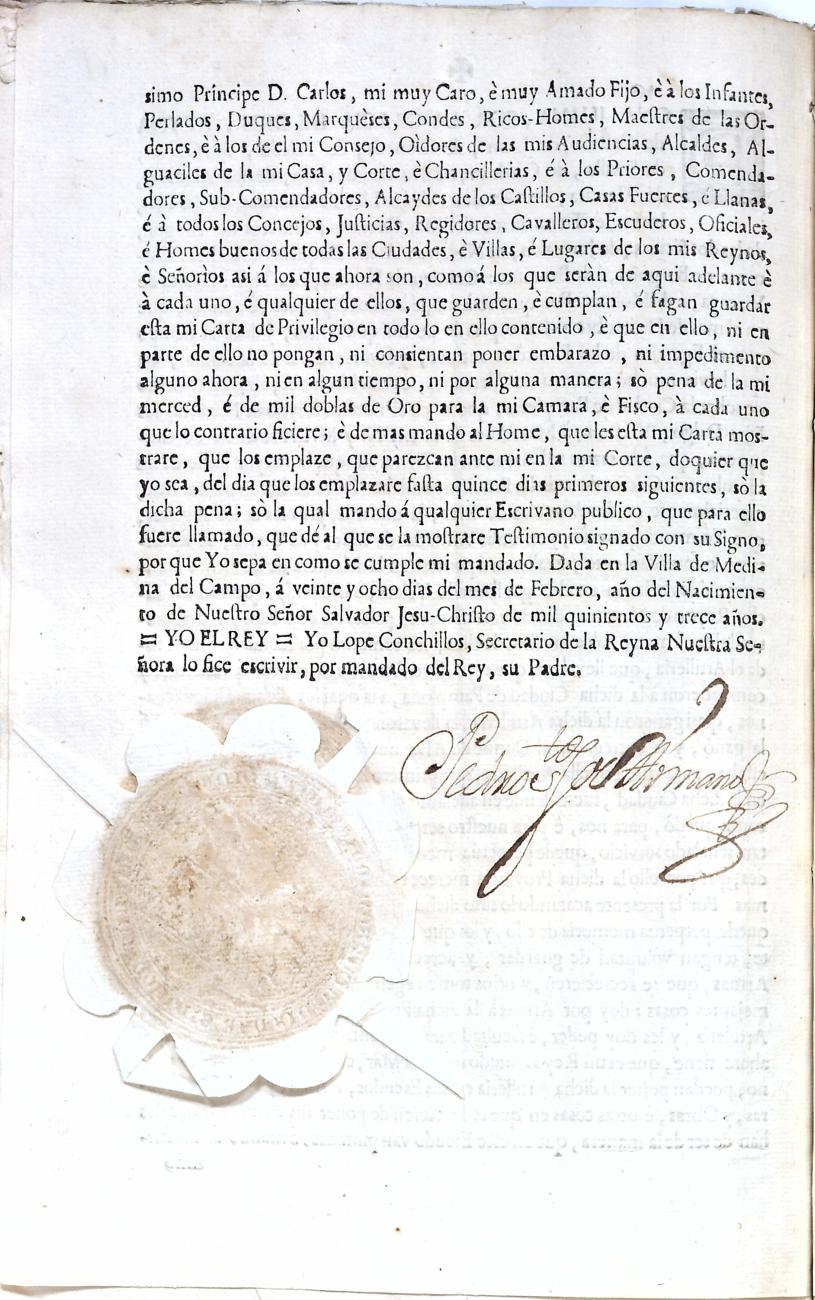 simo Príncipe D. Carlos, mi muy Caro, è muy Amado Fijo, è à los Infantes,
Perlados, Duques, Marquèses, Condes, Ricos-Homes, Maestres de las Or-
denes, è à los de el mi Consejo, Oìdores de las mis Audiencias, Alcaldes, Al-
guaciles de la mi Casa, y Corte, è Chancillerias, é à los Priores, Comenda-
dores, Sub-Comendadores, Alcaydes de los Castillos, Casas Fuertes, é Llanas,
é à todos los Concejos, Justicias, Regidores, Cavalleros, Escuderos, Oficiales,
é Homes buenos de todas las Ciudades, è Villas, é Lugares de los mis Reynos,
è Señorìos asi á los que ahora son, como á los que seràn de aqui adelante è
à cada uno, é qualquier de ellos, que guarden, è cumplan, é fagan guardar
esta mi Carta de Privilegio en todo lo en ello contenido, è que en ello, ni en
parte de ello no pongan, ni consientan poner embarazo, ni impedimento
alguno ahora, ni en algun tiempo, ni por alguna manera; sò pena de la mi
merced, é de mil doblas de Oro para la mi Camara, è Fisco, à cada uno
que lo contrario ficiere; è de mas mando al Home, que les esta mi Carta mos-
trare, que los emplaze, que parezcan ante mi en la mi Corte, doquier que
yo sea, del dia que los emplazare fasta quince dias primeros siguientes, sò la
dicha pena; sò la qual mando á qualquier Escrivano publico, que para ello
fuere llamado, que dé al que se la mostrare Testimonio signado con su Signo,
por que Yo sepa en como se cumple mi mandado. Dada en la Villa de Medi-
na del Campo, á veinte y ocho dias del mes de Febrero, año del Nacimien-
to de Nuestro Señor Salvador Jesu-Christo de mil quinientos y trece años.
= YO EL REY = Yo Lope Conchillos, Secretario de la Reyna Nuestra Se-
ñora lo fice escrivir, por mandado del Rey, su Padre.
Pedro